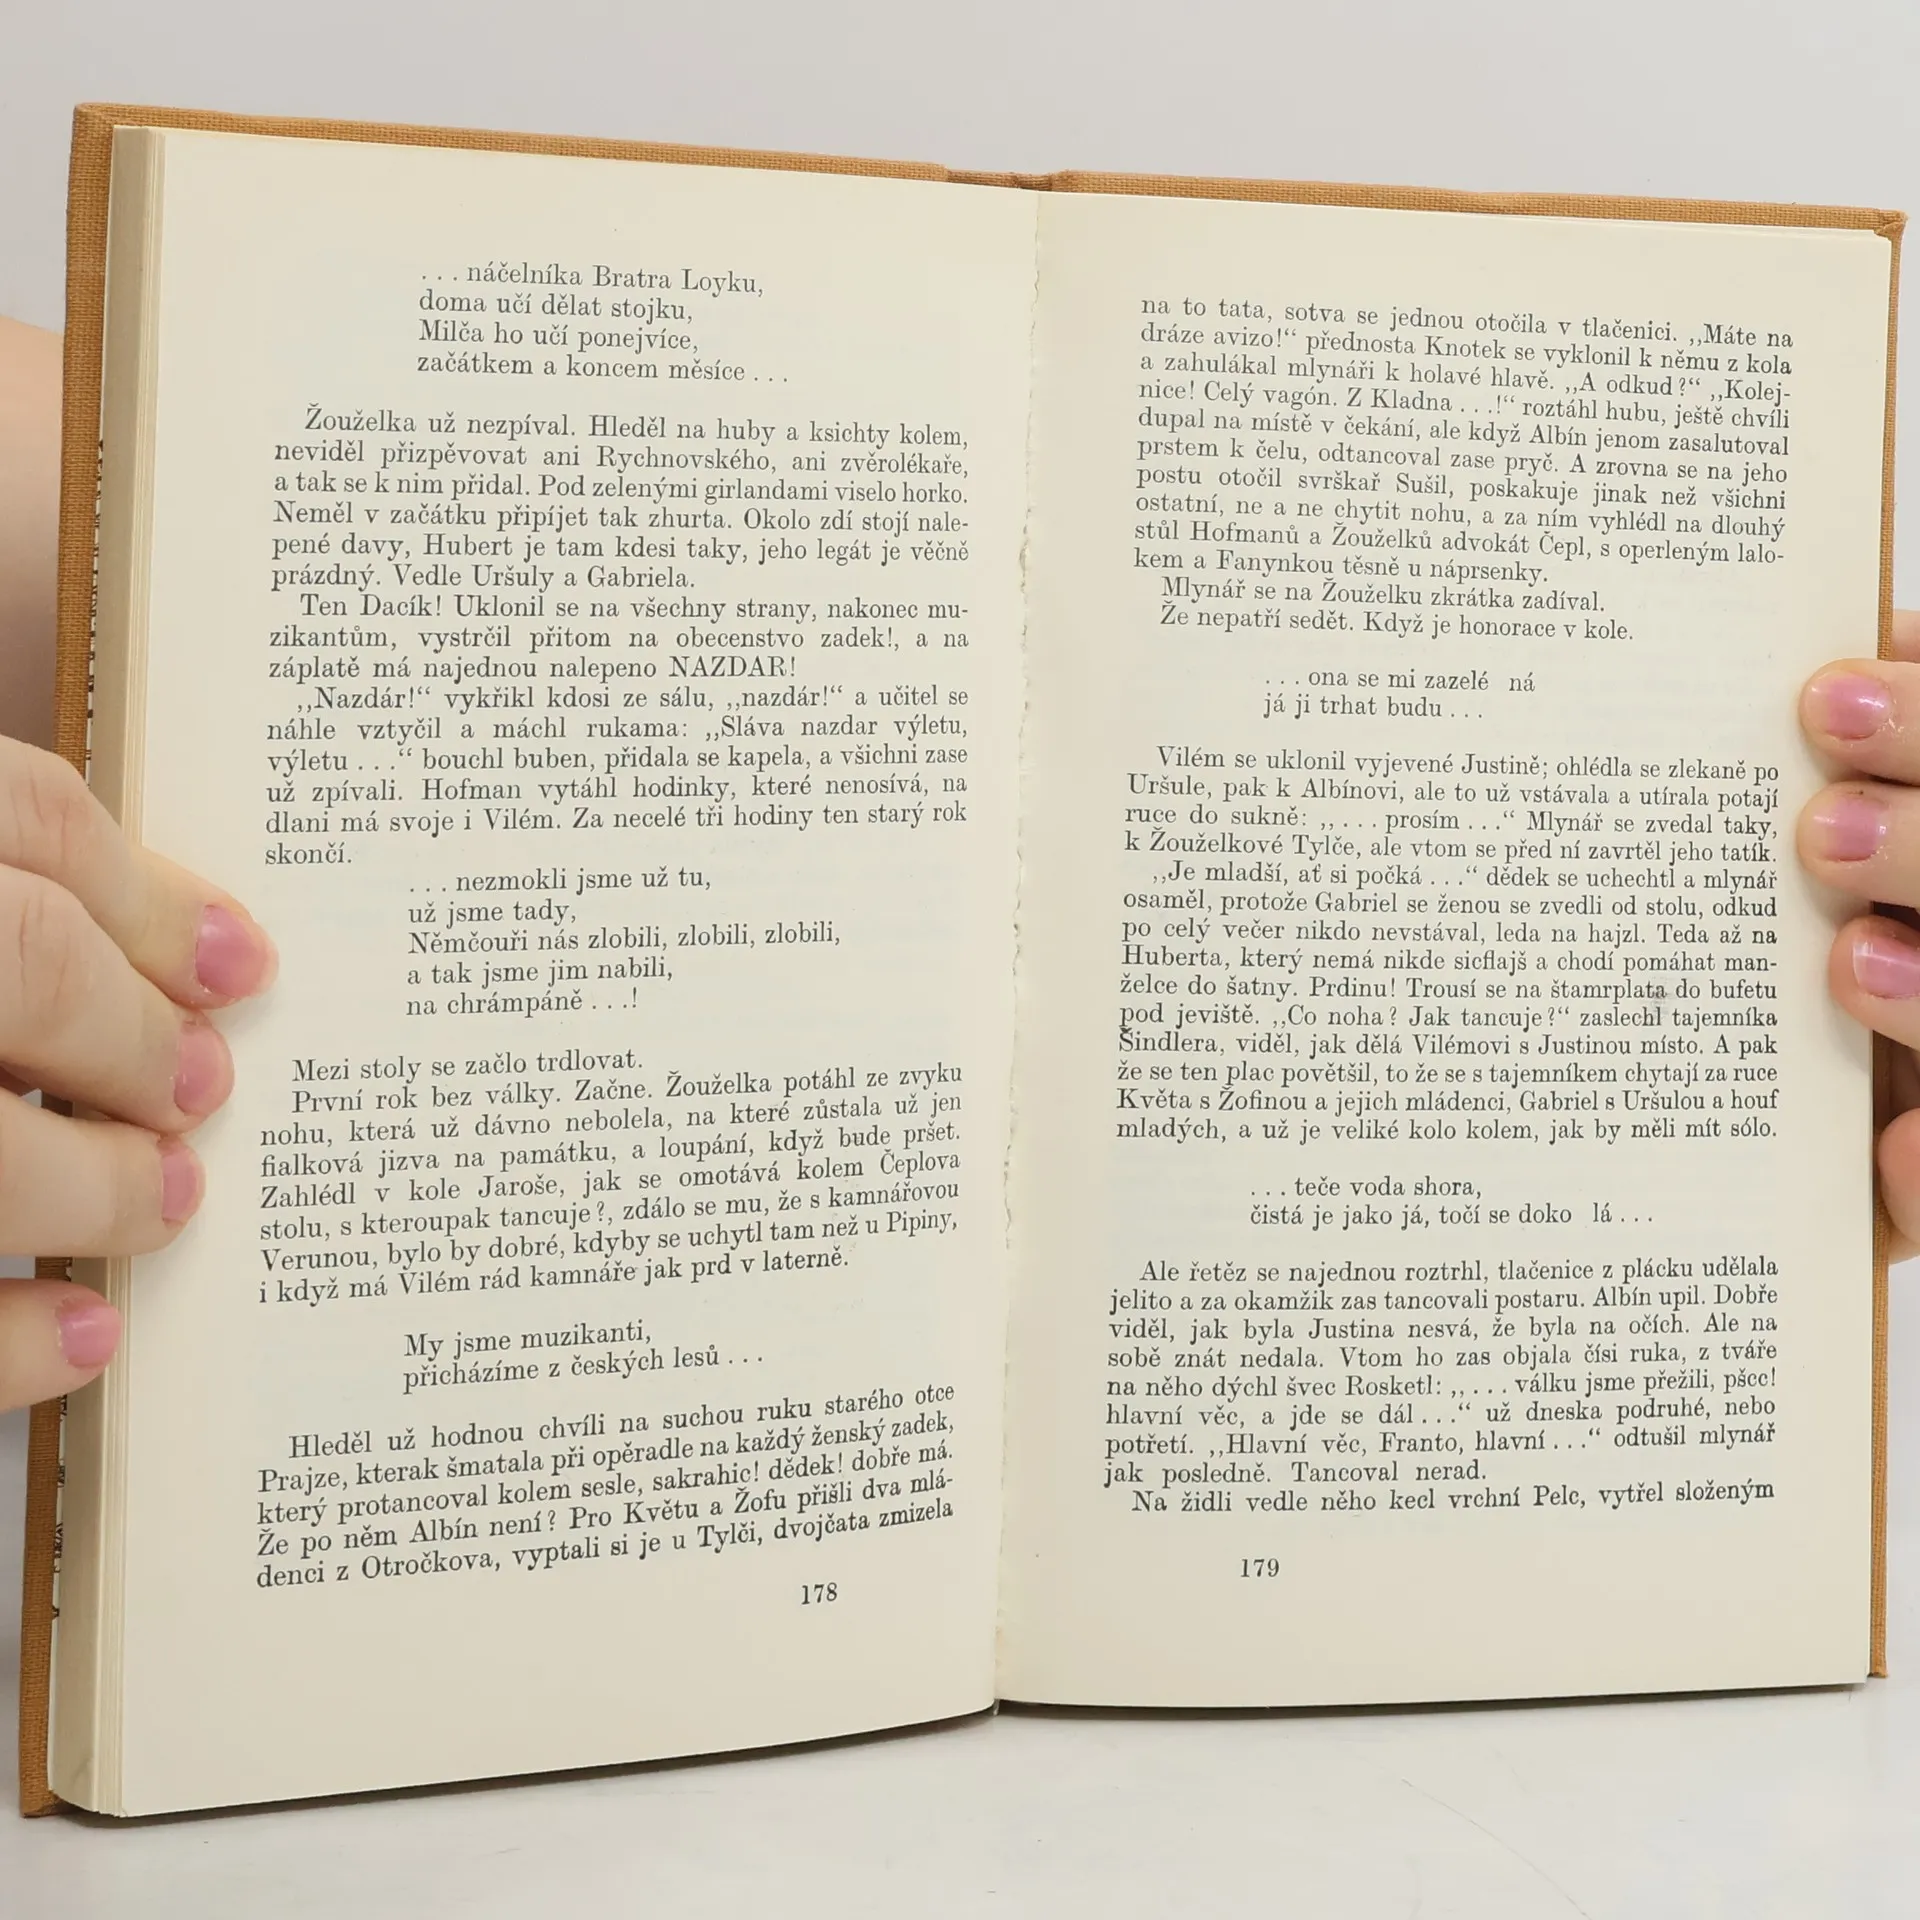 . . . náčelníka Bratra Loyku,
doma učí dělat stojku,
Milča ho učí ponejvíce,
začátkem a koncem měsíce . . .
Žouželka už nezpíval. Hleděl na huby a ksichty kolem,
neviděl přizpěvovat ani Rychnovského, ani zvěrolékaře,
a tak se k nim přidal. Pod zelenými girlandami viselo horko.
Neměl v začátku připíjet tak zhurta. Okolo zdí stojí nale-
pené davy, Hubert je tam kdesi taky, jeho legát je věčně
prázdný. Vedle Uršuly a Gabriela.
Ten Dacík! Uklonil se na všechny strany, nakonec mu-
zikantům, vystrčil přitom na obecenstvo zadek!, a na
záplatě má najednou nalepeno NAZDAR!
,,Nazdár!“ vykřikl kdosi ze sálu, ,,nazdár!“ a učitel se
náhle vztyčil a máchl rukama: ,,Sláva nazdar výletu,
výletu . . .“ bouchl buben, přidala se kapela, a všichni zase
už zpívali. Hofman vytáhl hodinky, které nenosívá, na
dlani má svoje i Vilém. Za necelé tři hodiny ten starý rok
skončí.
. . . nezmokli jsme už tu,
už jsme tady,
Němčouři nás zlobili, zlobili, zlobili,
a tak jsme jim nabili,
na chrámpáně . . .!
Mezi stoly se začlo trdlovat.
První rok bez války. Začne. Žouželka potáhl ze zvyku
nohu, která už dávno nebolela, na které zůstala už jen
fialková jizva na památku, a loupání, když bude pršet.
Zahlédl v kole Jaroše, jak se omotává kolem Čeplova
stolu, s kteroupak tancuje?, zdálo se mu, že s kamnářovou
Verunou, bylo by dobré, kdyby se uchytl tam než u Pipiny,
i když má Vilém rád kamnáře jak prd v laterně.
My jsme muzikanti,
přicházíme z českých lesů . . .
Hleděl už hodnou chvíli na suchou ruku starého otce
Prajze, kterak šmatala při opěradle na každý ženský zadek,
který protancoval kolem sesle, sakrahic! dědek! dobře má.
Že po něm Albín není? Pro Květu a Žofu přišli dva mlá-
denci z Otročkova, vyptali si je u Tylči, dvojčata zmizela
178
na to tata, sotva se jednou otočila v tlačenici. ,,Máte na
dráze avizo!“ přednosta Knotek se vyklonil k němu z kola
a zahulákal mlynáři k holavé hlavě. ,,A odkud?“ ,,Kolej-
nice! Celý vagón. Z Kladna . . .!“ roztáhl hubu, ještě chvíli
dupal na místě v čekání, ale když Albín jenom zasalutoval
prstem k čelu, odtancoval zase pryč. A zrovna se na jeho
postu otočil svrškař Sušil, poskakuje jinak než všichni
ostatní, ne a ne chytit nohu, a za ním vyhlédl na dlouhý
stůl Hofmanů a Žouželků advokát Čepl, s operleným lalo-
kem a Fanynkou těsně u náprsenky.
Mlynář se na Žouželku zkrátka zadíval.
Že nepatří sedět. Když je honorace v kole.
. . . ona se mi zazelé ná
já ji trhat budu . . .
Vilém se uklonil vyjevené Justině; ohlédla se zlekaně po
Uršule, pak k Albínovi, ale to už vstávala a utírala potají
ruce do sukně: ,, . . . prosím . . .“ Mlynář se zvedal taky,
k Žouželkové Tylče, ale vtom se před ní zavrtěl jeho tatík.
,,Je mladší, ať si počká . . .“ dědek se uchechtl a mlynář
osaměl, protože Gabriel se ženou se zvedli od stolu, odkud
po celý večer nikdo nevstával, leda na hajzl. Teda až na
Huberta, který nemá nikde sicflajš a chodí pomáhat man-
želce do šatny. Prdinu! Trousí se na štamrplata do bufetu
pod jeviště. ,,Co noha? Jak tancuje?“ zaslechl tajemníka
Šindlera, viděl, jak dělá Vilémovi s Justinou místo. A pak
že se ten plac povětšil, to že se s tajemníkem chytají za ruce
Květa s Žofinou a jejich mládenci, Gabriel s Uršulou a houf
mladých, a už je veliké kolo kolem, jak by měli mít sólo.
. . . teče voda shora,
čistá je jako já, točí se doko lá . . .
Ale řetěz se najednou roztrhl, tlačenice z plácku udělala
jelito a za okamžik zas tancovali postaru. Albín upil. Dobře
viděl, jak byla Justina nesvá, že byla na očích. Ale na
sobě znát nedala. Vtom ho zas objala čísi ruka, z tváře
na něho dýchl švec Rosketl: ,, . . . válku jsme přežili, pšcc!
hlavní věc, a jde se dál . . .“ už dneska podruhé, nebo
potřetí. ,,Hlavní věc, Franto, hlavní . . .“ odtušil mlynář
jak posledně. Tancoval nerad.
Na židli vedle něho kecl vrchní Pelc, vytřel složeným
179